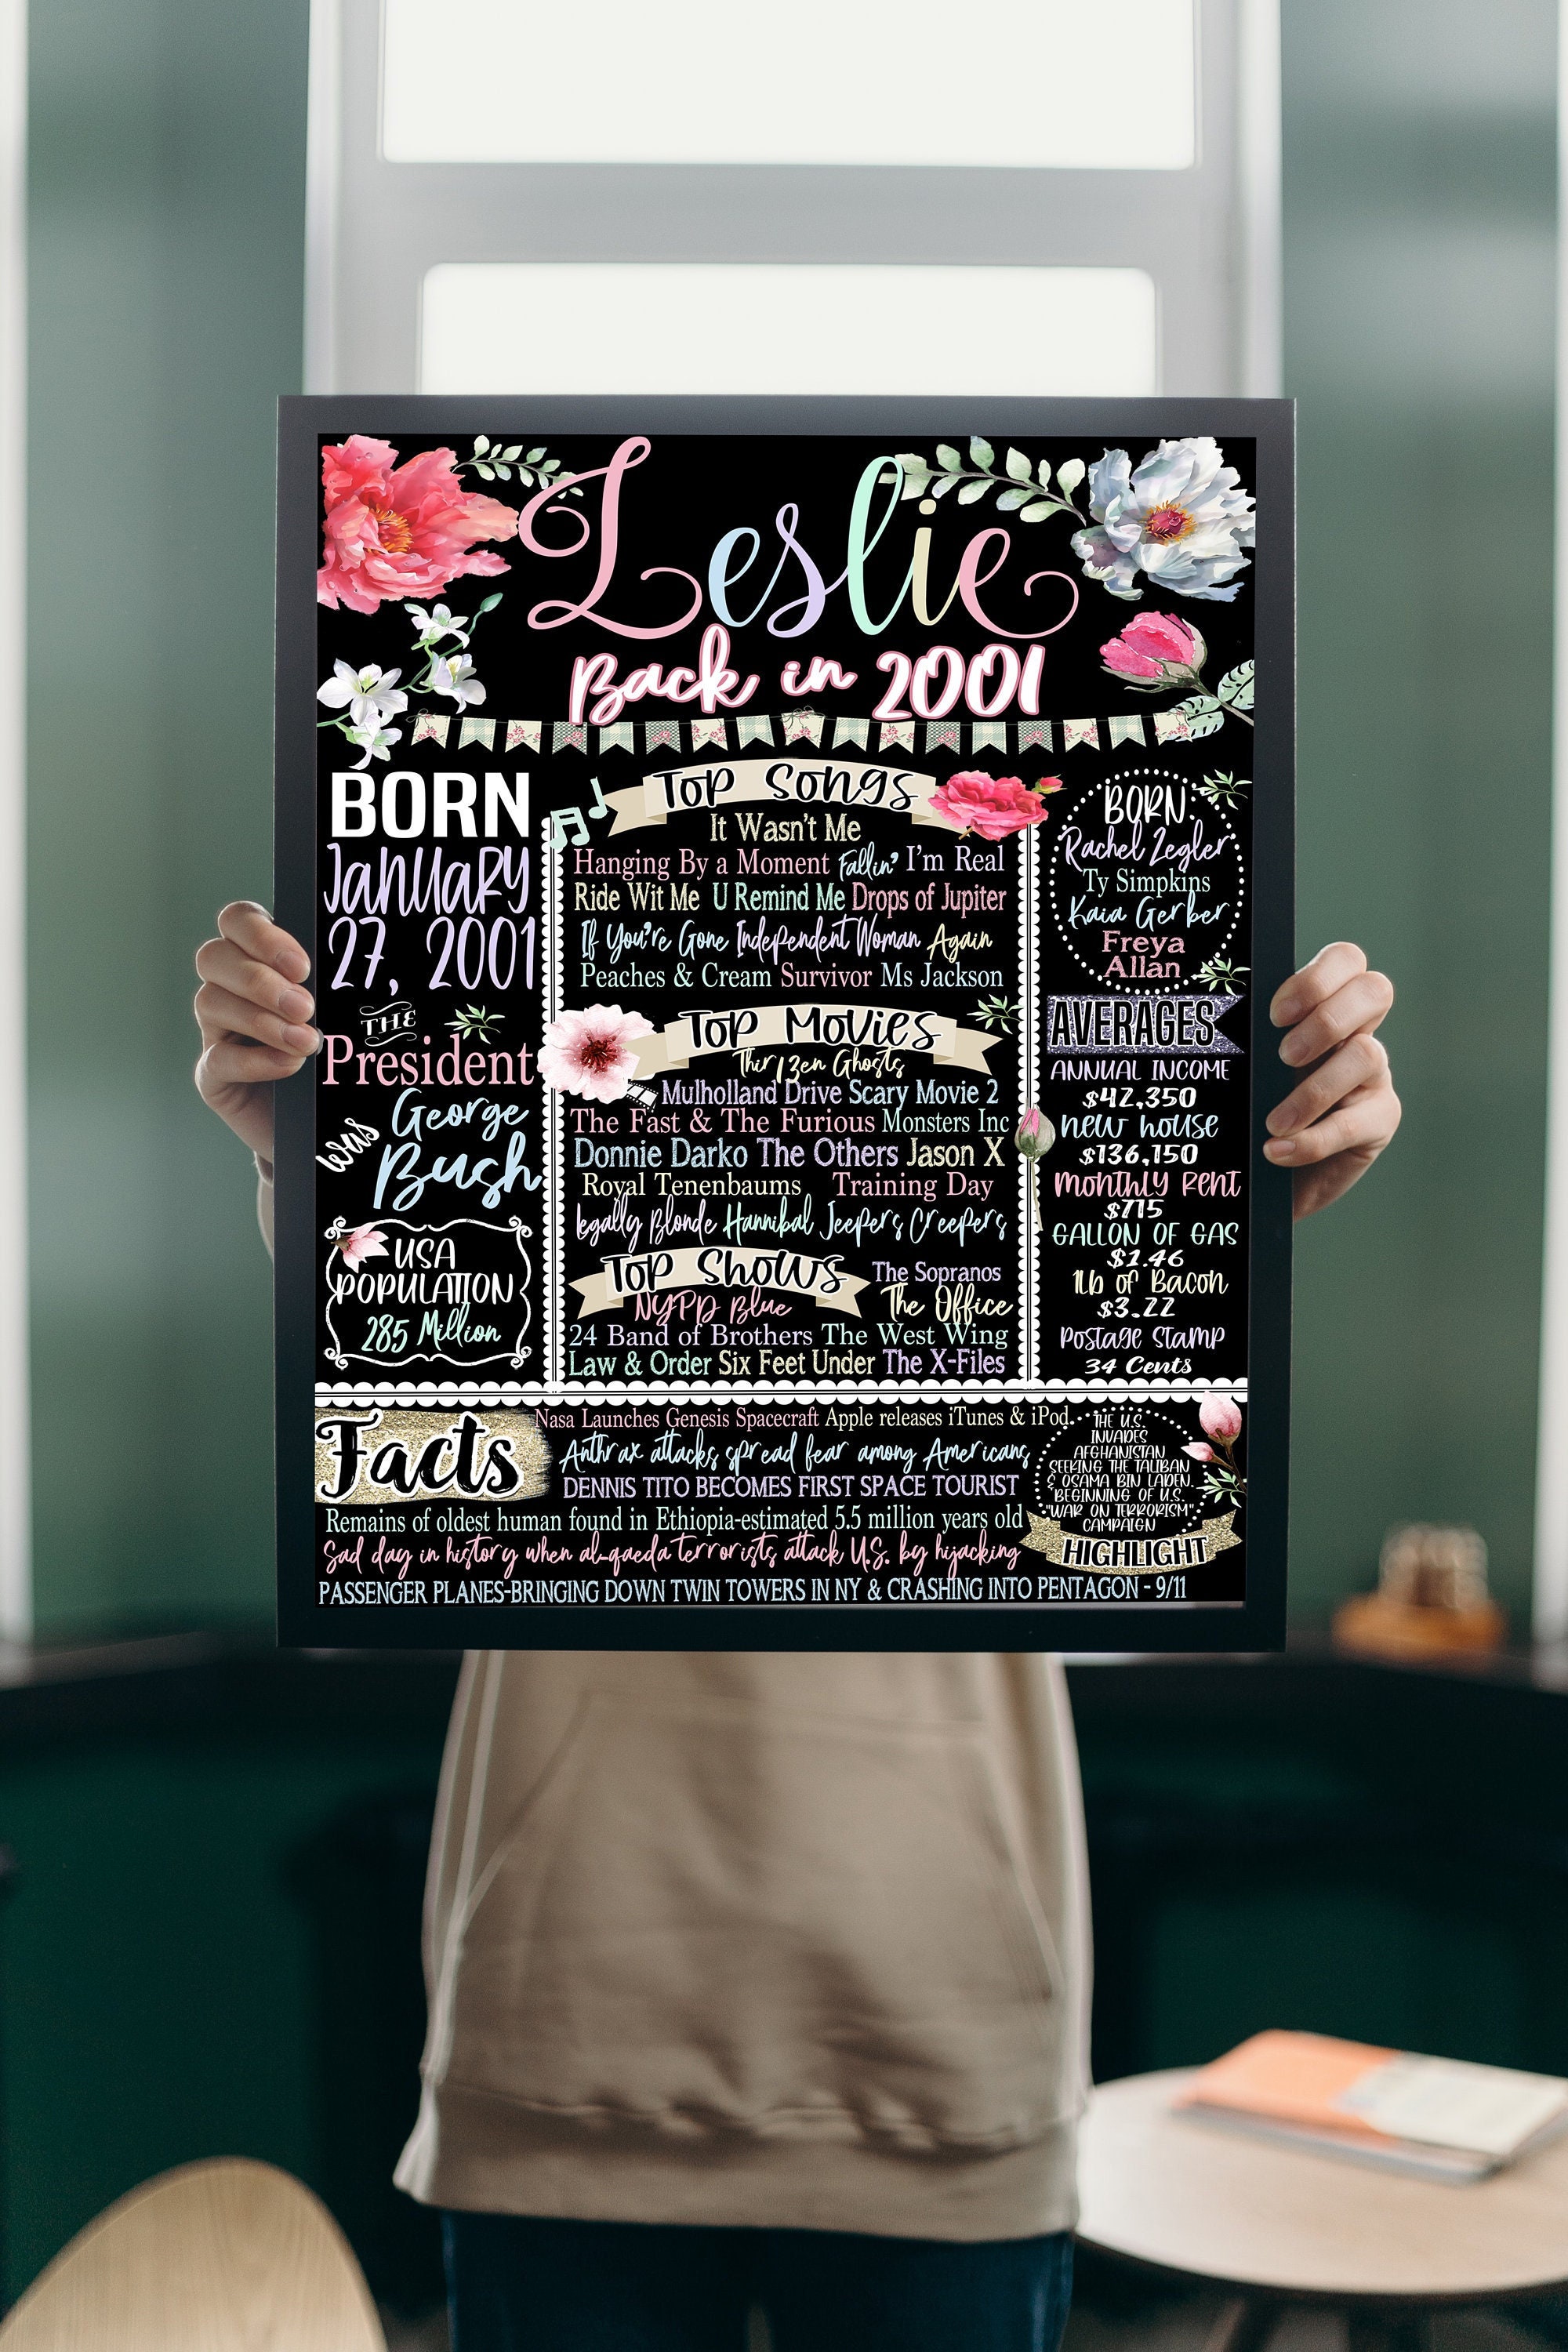 Leslie
Back in 2001
BORN
January
27, 2001
THE
President
was George
Bush
USA
POPULATION
285 Million
Top Songs
It Wasn't Me
Hanging By a Moment Fallin' I'm Real
Ride Wit Me U Remind Me Drops of Jupiter
If You're Gone Independent Woman Again
Peaches & Cream Survivor Ms Jackson
Top Movies
Thir13en Ghosts
Mulholland Drive Scary Movie 2
The Fast & The Furious Monsters Inc
Donnie Darko The Others Jason X
Royal Tenenbaums Training Day
Legally Blonde Hannibal Jeepers Creepers
Top Shows
The Sopranos
NYPD Blue The Office
24 Band of Brothers The West Wing
Law & Order Six Feet Under The X-Files
BORN:
Rachel Zegler
Ty Simpkins
Kaia Gerber
Freya
Allan
AVERAGES
ANNUAL INCOME
$42,350
new house
$136,150
monthly rent
$715
GALLON OF GAS
$1.46
1lb of Bacon
$3.22
Postage Stamp
34 Cents
Facts
Nasa Launches Genesis Spacecraft Apple releases iTunes & iPod
Anthrax attacks spread fear among Americans
DENNIS TITO BECOMES FIRST SPACE TOURIST
Remains of oldest human found in Ethiopia-estimated 5.5 million years old
Sad day in history when al-qaeda terrorists attack U.S. by hijacking
PASSENGER PLANES-BRINGING DOWN TWIN TOWERS IN NY & CRASHING INTO PENTAGON - 9/11
THE U.S.
INVADES
AFGHANISTAN
SEEKING THE TALIBAN
& OSAMA BIN LADEN.
BEGINNING OF U.S.
"WAR ON TERRORISM"
CAMPAIGN
HIGHLIGHT